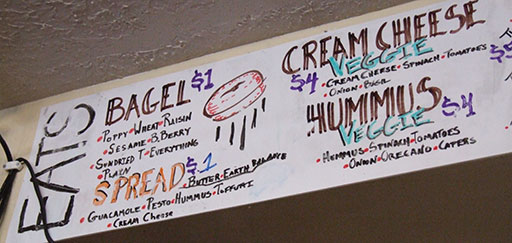 EATS
BAGEL $1
• Poppy • Wheat • Raisin
• Sesame • B.Berry
Sundried T • Everything
• Plain
SPREAD $1
• Butter • Earth Balance
• Guacamole • Pesto • Hummus • Toffuti
• Cream Cheese
CREAM CHEESE
$4 VEGGIE
• Cream Cheese • Spinach • Tomatoes
• Onion • Basil
HUMMUS $4
VEGGIE
• Hummus • Spinach • Tomatoes
• Onion • Oregano • Capers